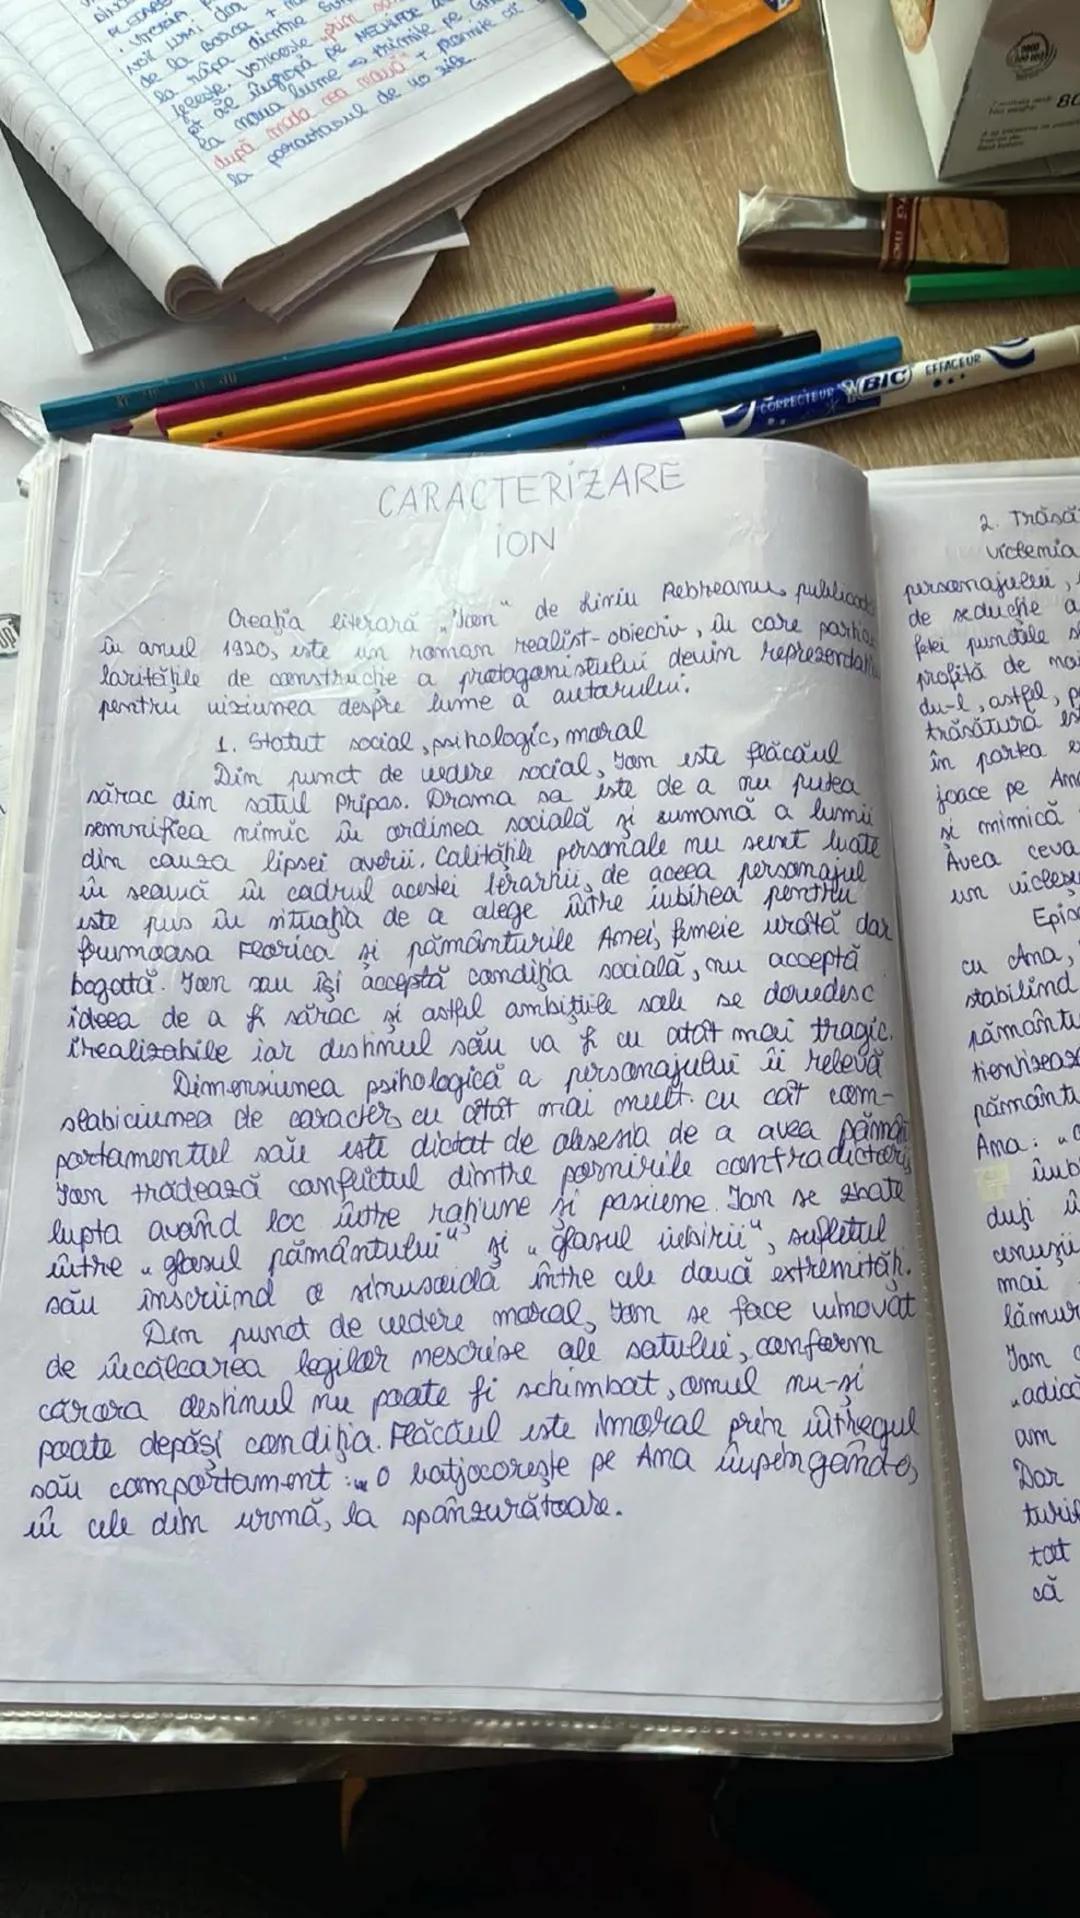 la râpa dintre
pe
la noua lume → trimite pe
după moda cea nouă" +
la parastasul de 40 zile
80
CORRECTEUR BIC EFFACEUR
CARACTERiZARE
iON
Creația literară „Ion" de Liviu Rebreanu, publicată
în anul 1920, este un roman realist-obiectiv, în care particu
laritățile de construcție a protagonistului devin reprezentati
pentru viziunea despre lume a autorului.
1. Statut social, psihologic, moral
Din punct de vedere social, Ion este flăcăul
sărac din satul Pripas. Drama sa este de a nu putea
semnifica nimic în ordinea socială și umană a lumii
din cauza lipsei averii. Calitățile personale nu sunt luate
în seamă în cadrul acestei ierarhii, de aceea personajul
este pus în situația de a alege între iubirea pentru
frumoasa Florica și pământurile Anei, femeie urâtă dar
bogată. Ion sau își acceptă condiția socială, nu acceptă
ideea de a fi sărac și astfel ambițiile sale se dovedesc
irealizabile iar destinul său va fi cu atât mai tragic.
Dimensiunea psihologică a personajului îi relevă
slăbiciunea de caracter, cu atât mai mult. cu cât com-
portamentul său este dictat de obsesia de a avea pământ
Ion trădează conflictul dintre pornirile contradictorii,
lupta având loc între rațiune și pasiune. Ion se zbate
între „glasul pământului" și „glasul iubirii", sufletul
său înscriind o sinusoidă între cele două extremități.
Din punct de vedere moral, Ion se face vinovat
de încălcarea legilor nescrise ale satului, conform
cărora destinul nu poate fi schimbat, omul nu-și
poate depăși condiția. Flăcăul este imoral prin întregul
său comportament: o batjocorește pe Ana împingând-o,
în cele din urmă, la spânzurătoare.
2. Trăsă
viclenia
personajului,
de seducție a
fetei punctele
profită de
du-l, astfel,
trăsătură
în partea
joace pe Ana
și mimică
Avea ceva
un
Epis
cu Ana,
stabilind
pământu
pământu
Ana:
iub
duți
cenușii
mai
lămur
Ion
„adică
am
Dar
tot
că